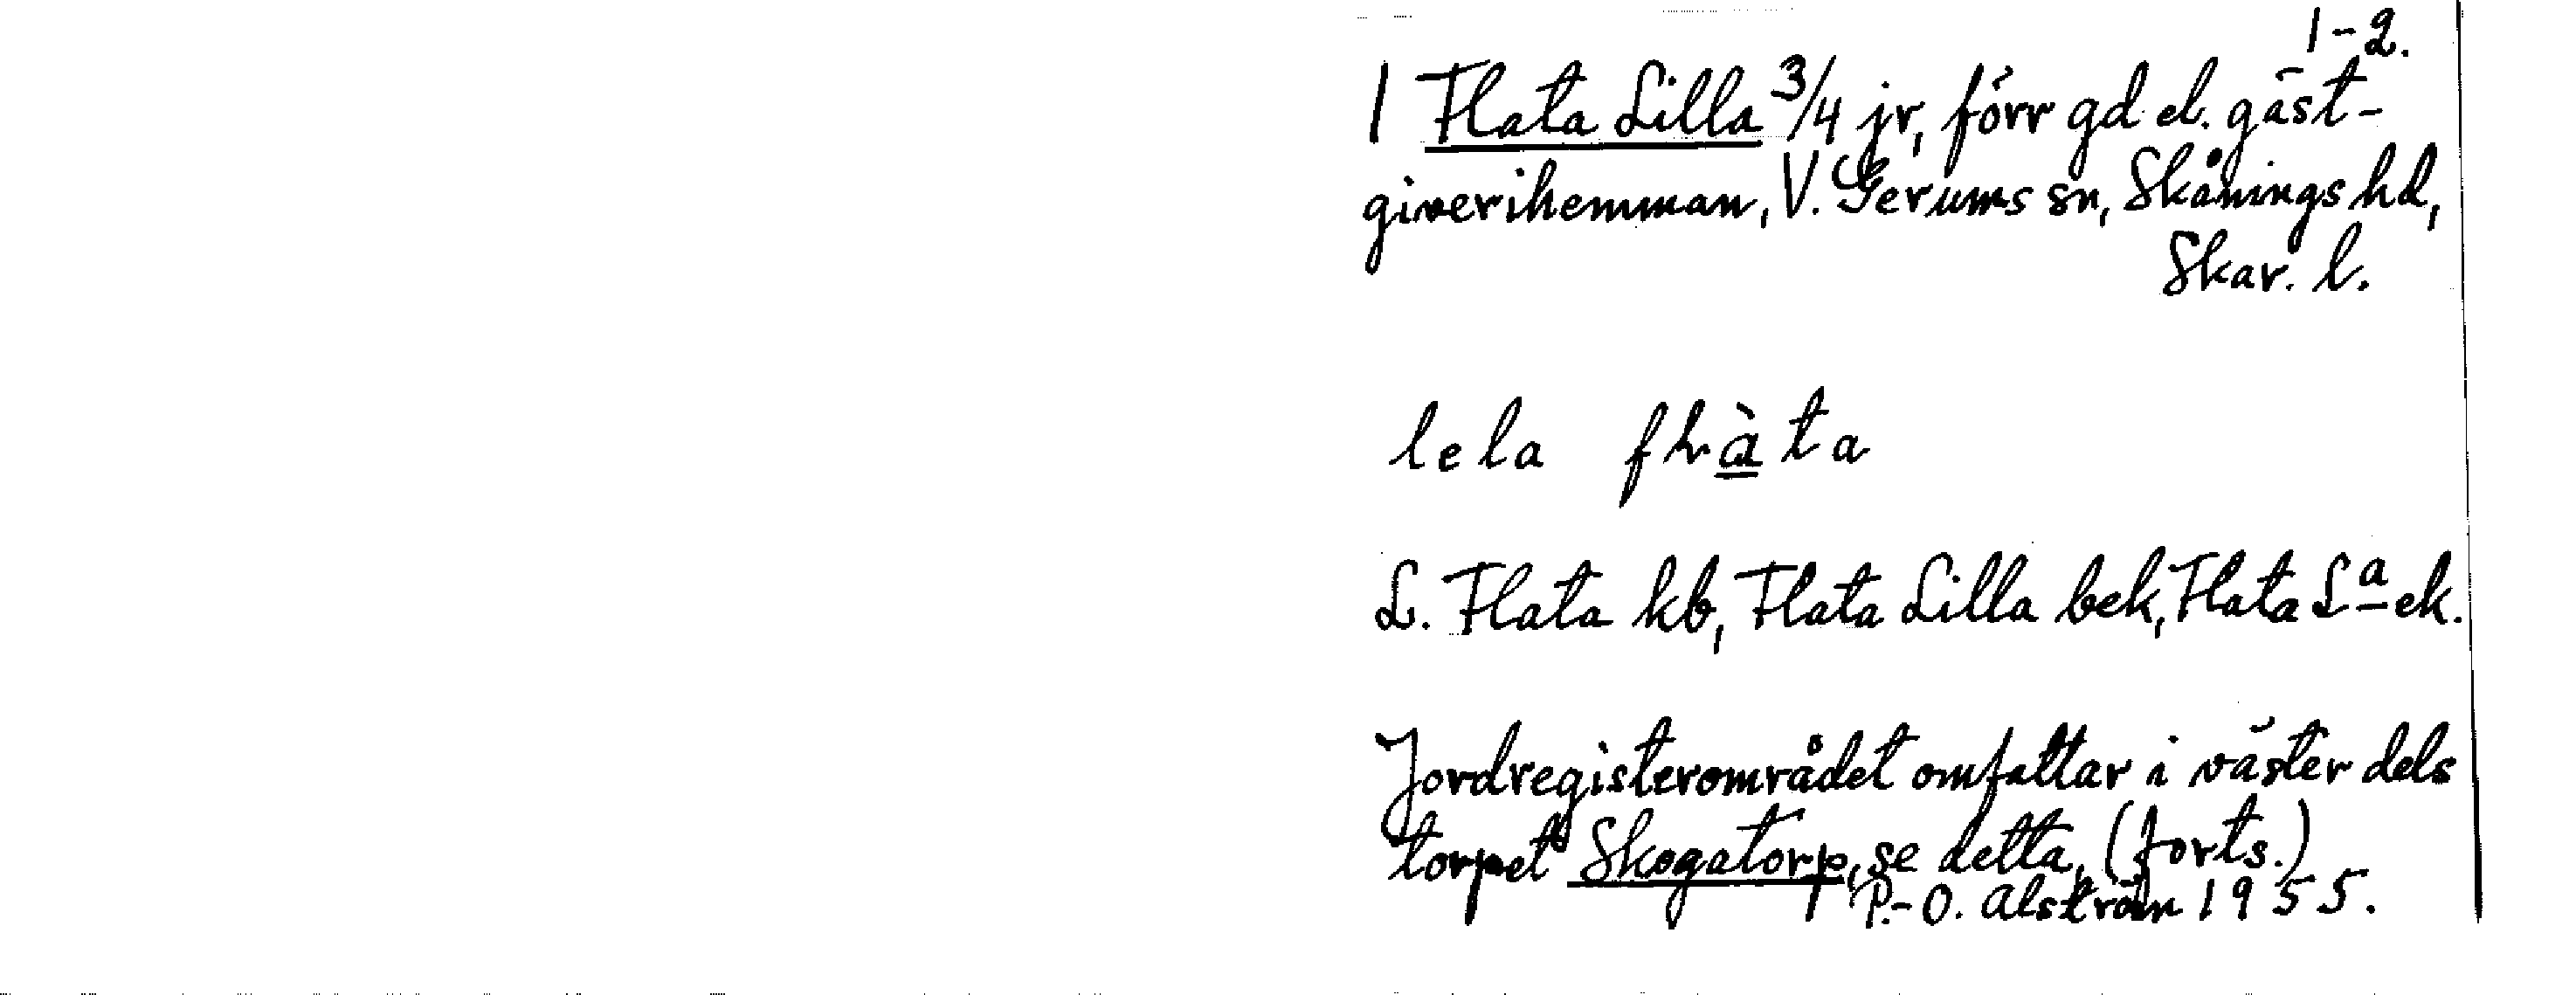 1-2.
1 Flata Lilla 3/4 jr, förr gd el. gäst-
giverihemman, V. Gerums sn, Skånings hd,
Skar. l.
lela fɬàta
L. Flata kb, Flata Lilla bek, Flata Lª ek.
Jordregisterområdet omfattar i väster dels
torpet Skogatorp, se detta, (forts.)
P.-O. Alström 1955.